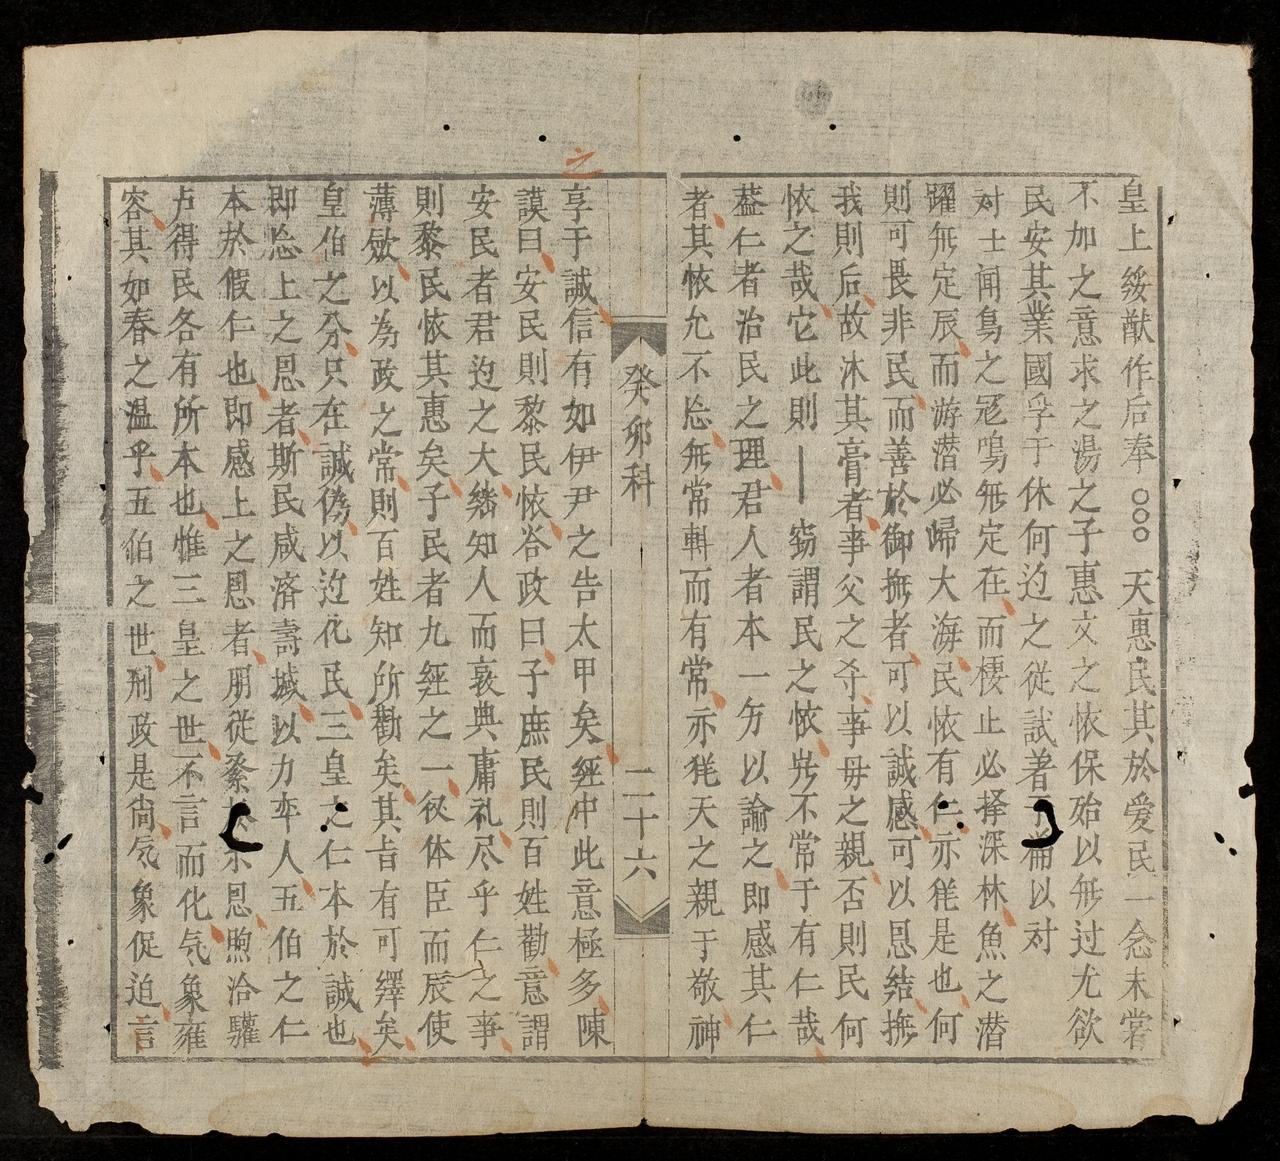 皇上綏猷作后奉○○○天惠民其於爱民一念未嘗
不加之意求之湯之子惠文之怀保殆以無过尤欲
民安其業國孚于休何迨之従試著于篇以对
对士闻鳥之冠鳴無定在而棲止必择深林魚之潜
躍無定辰而游潜必歸大海民怀有仁亦犹是也何
則可畏非民而善於御撫者可以誠感可以恩結撫
我則后故沐其膏者事父之孝事母之親否則民何
怀之哉它此則一竊謂民之怀岂不常于有仁哉
葢仁者治民之理君人者本一方以論之即感其仁
者其怀允不忘無常斁而有常亦犹天之親于敬神
癸卯科
二十六
之
享于誠信有如伊尹之告太甲矣經中此意極多陳
謨曰安民則黎民怀咨政曰子庶民則百姓勸意謂
安民者君迨之大繇知人而敦典庸礼尽乎仁之事
則黎民怀其惠矣子民者九經之一敬体臣而辰使
薄斂以為政之常則百姓知所勸矣其旨有可繹矣
皇伯之分只在誠偽以迨化民三皇之仁本於誠也
即忘上之恩者斯民咸济壽域以力率人五伯之仁
本於假仁也即感上之恩者朋従於小恩煦洽驩
卢得民各有所本也惟三皇之世不言而化気象雍
容其如春之温乎五伯之世刑政是尚気象促迫言